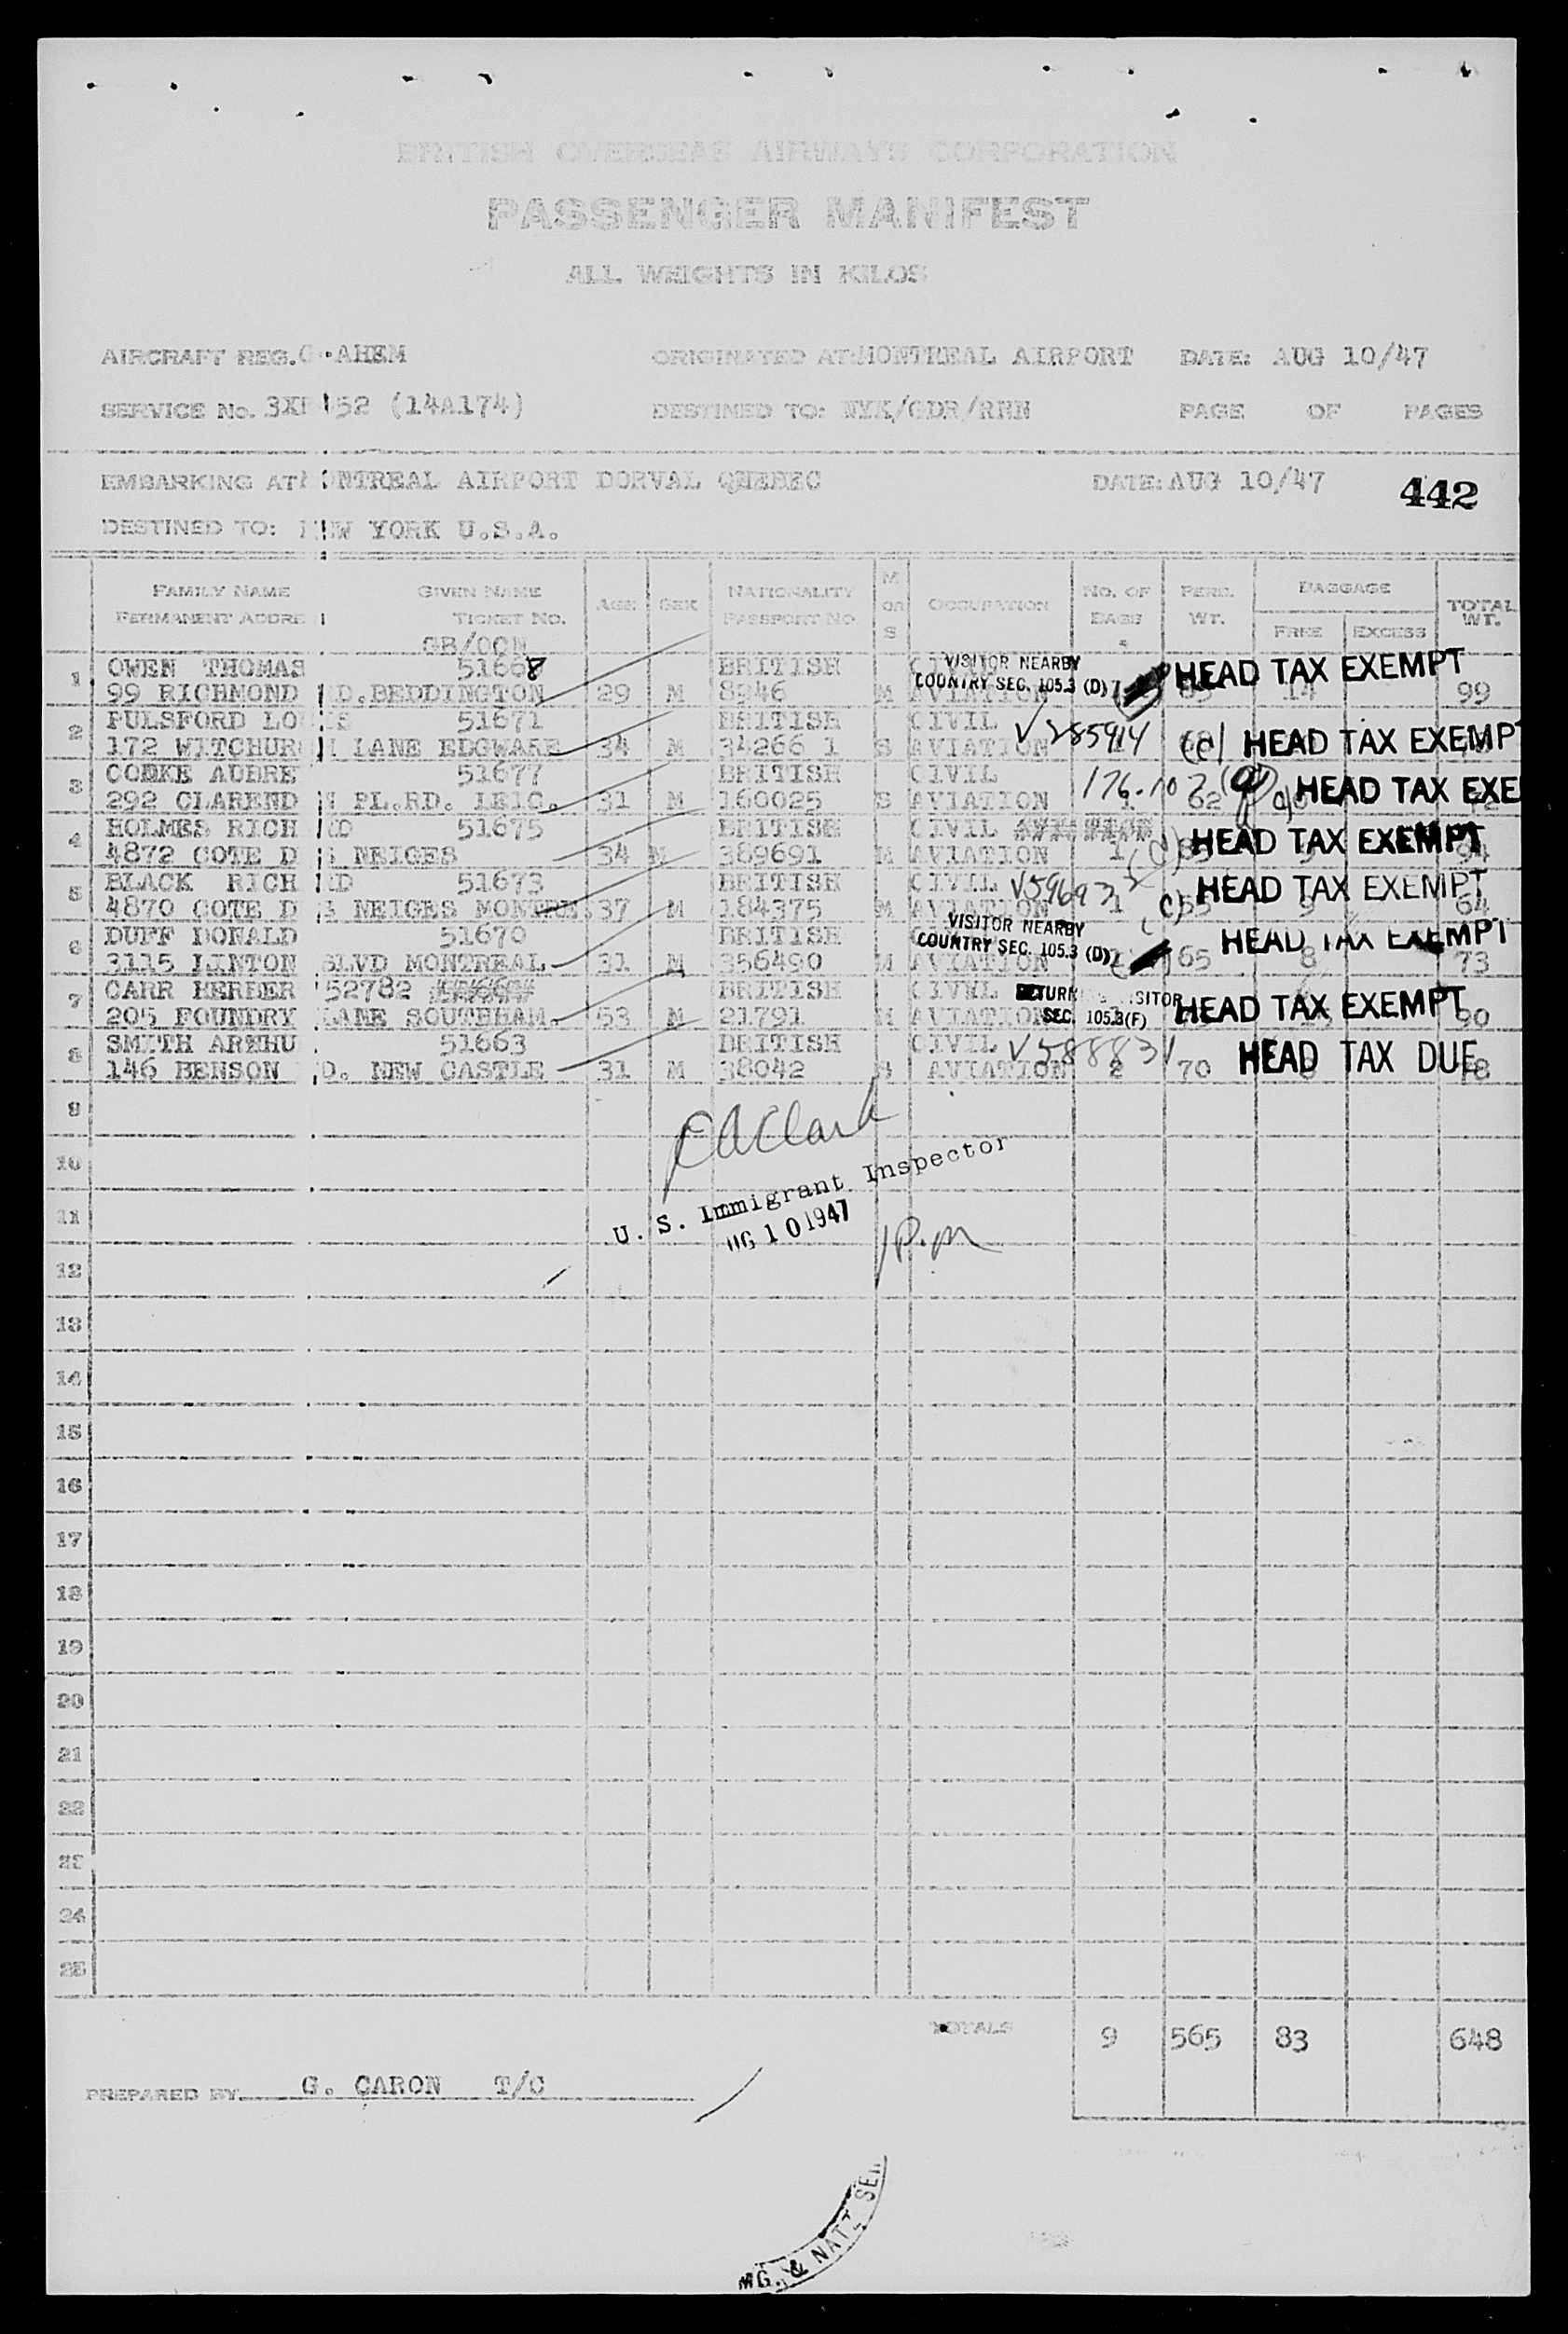 BRITISH OVERSEAS AIRWAYS CORPORATION
PASSENGER MANIFEST
ALL WEIGHTS IN KILOS
AIRCRAFT REG. G-AHEM ORIGINATED AT: MONTREAL AIRPORT DATE: AUG 10/47
SERVICE No. 52 (14A174) DESTINED TO: NYK/GDR/RNN PAGE OF PAGES
EMBARKING AT MONTREAL AIRPORT DORVAL QUEBEC DATE: AUG 10/47 442
DESTINED TO: NEW YORK U.S.A.
FAMILY NAME GIVEN NAME AGE SEX NATIONALITY M OR S OCCUPATION NO. OF BAGS PERS. WT. BAGGAGE TOTAL WT.
PERMANENT ADDRE TICKET NO. PASSPORT NO FREE EXCESS
GB/OON
1 OWEN THOMAS 51668 BRITISH VISITOR NEARBY HEAD TAX EXEMPT
99 RICHMOND D. BEDDINGTON 29 M 8946 M AVIATION COUNTRY SEC. 105.3 (D) 14 99
2 PULSFORD LO IS 51671 BRITISH CIVIL V 285914 (C) HEAD TAX EXEMPT
172 WITCHUR H LANE EDGWARE 34 M 34266 1 S AVIATION
3 COOKE AUBRE 51677 BRITISH CIVIL 176.107 HEAD TAX EXE
292 CLAREND N PL.RD. LEIC. 31 M 160025 S AVIATION 1 62
4 HOLMES RICH RD 51675 BRITISH CIVIL HEAD TAX EXEMPT
4872 COTE D S NEIGES 34 M 389691 M AVIATION 1 (C) 85 9 94
5 BLACK RICH RD 51673 BRITISH CIVIL V596932 HEAD TAX EXEMPT
4870 COTE D S NEIGES MONTRE 37 M 184375 M AVIATION 1 (C) 55 9 64
6 DUFF DONALD 51670 BRITISH VISITOR NEARBY HEAD TAX EXEMPT
3115 LINTON BLVD MONTREAL 31 M 356490 M AVIATION COUNTRY SEC. 105.3 (D) 65 8 73
7 CARR HERBER 52782 BRITISH CIVIL RETURNING VISITOR HEAD TAX EXEMPT
205 FOUNDRY LANE SOUTHHAM. 53 M 21791 M AVIATION SEC. 105.3(F) 90
8 SMITH ARTHU 51663 BRITISH CIVIL V588831 HEAD TAX DUE
146 BENSON D. NEW CASTLE 31 M 38042 S AVIATION 2 70 8 78
9
R A Clark
10
U. S. Immigrant Inspector
11
AUG 10 1947 1 P.m
12
13
14
15
16
17
18
19
20
21
22
23
24
25
TOTALS 9 565 83 648
PREPARED BY G. CARON T/C
IMG. & NATZ SER